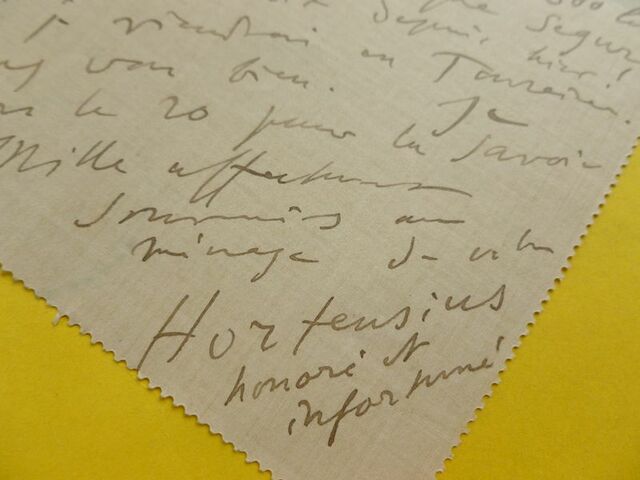 Segur
depuis hier
je viendrai en Touraine.
van bien. Je
le 20 pour la Savoie
Mille affectueux
souvenirs au
ménage de votre
Hortensius
honoré et
infortuné